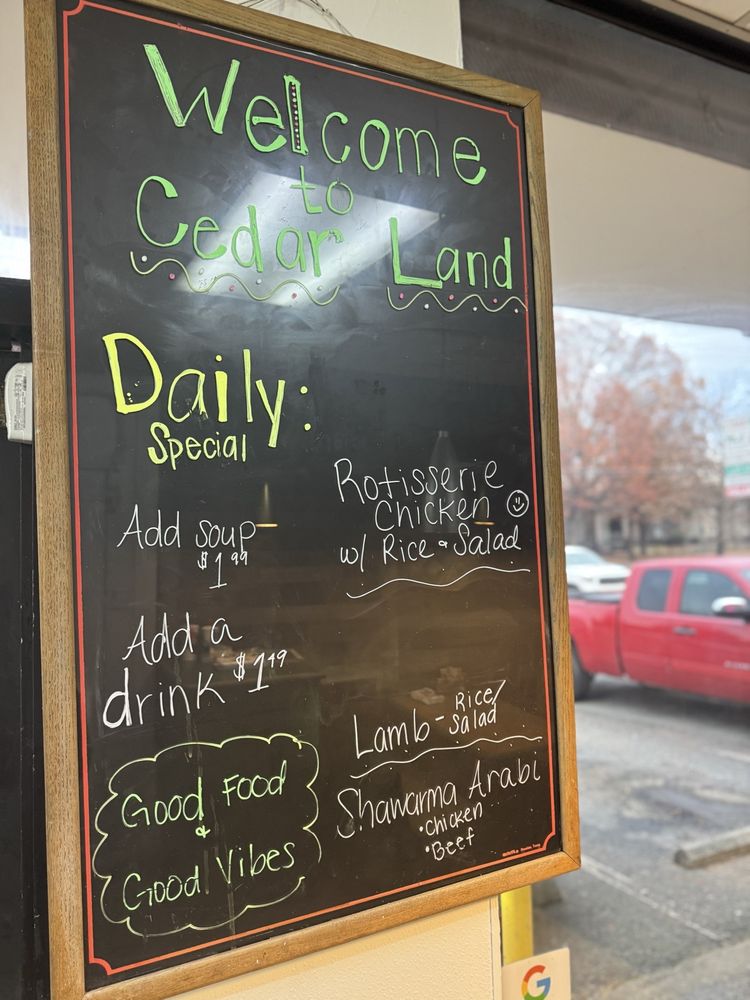 Welcome
to
Cedar Land
Daily:
Special
Add soup
$1.99
Add a
drink $1.49
Good Food
&
Good Vibes
Rotisserie
Chicken
w/ Rice & Salad
Lamb - Rice/
Salad
Shawarma Arabi
• Chicken
• Beef
G